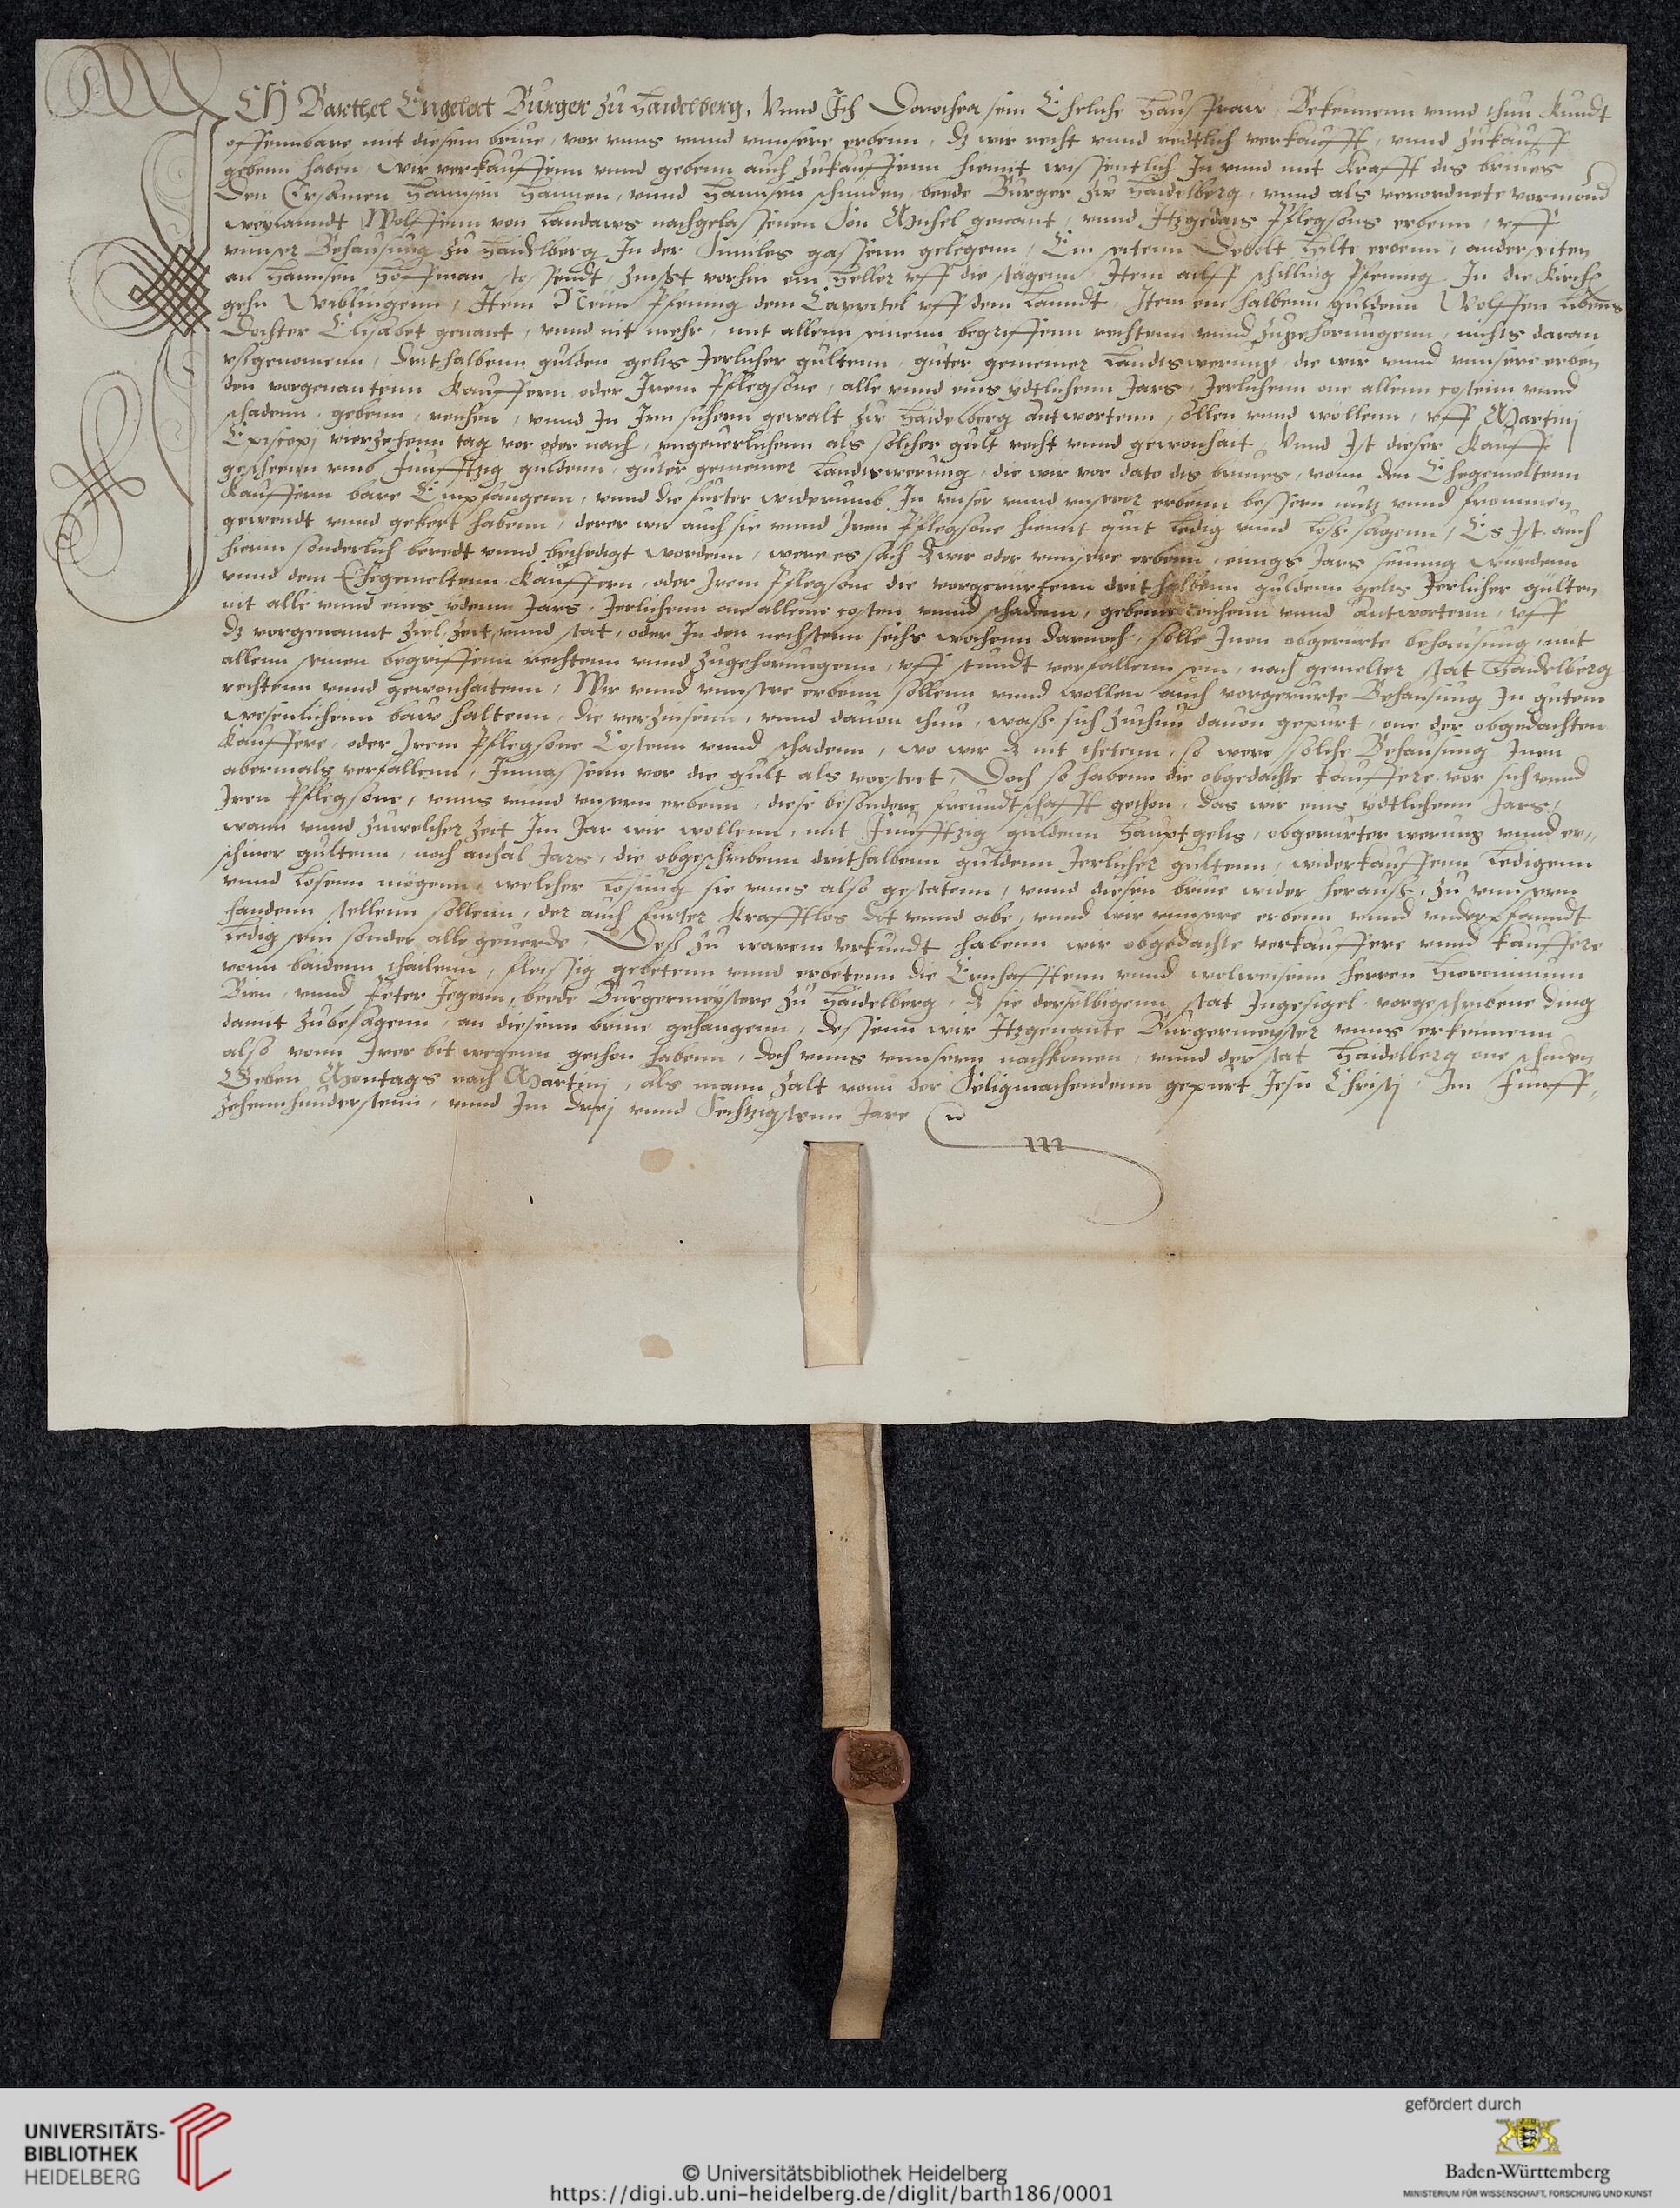 ICH Barthel Engelert Burger zu Haidelberg, Vnnd Ich Dorothea sein Eheliche Hausfraw Bekennenn vnnd thun kundt
offennbare mit diesem briue, vor vnns vnnd vnnsere erbenn, dz wir recht vnnd redtlich verkaufft, vnnd zukauff
gebenn haben, wir verkauffenn vnnd gebenn auch zukauffenn hiemit wissentlich In vnnd mit krafft dis briues
Den Ersamen Hannsen Hannen, vnnd Hannsen schunden, beede Burger zw Haidelberg, vnnd als verordnete vormond
weylanndt Wolffenn von Landaws nachgelassenen Son Michel genant, vnnd Itzgedats Pflegsons erbenn, vff
vnnser Behausung zu Haidelberg In der gassenn gelegenn, Ein seitenn Debolt Hilts erbenn, anderseiten
an Hannsen Hoffman stossendt, zinst vorhin ein Heller vff die stägenn, Item ailff schilling Pfennig In die Kirch
gehn Wiblingenn, Item Neün Pfennig dem Cappitel vff dem Lanndt, Item ein halbenn guldenn Wolffen
Dochter Elisabet genant, vnnd nit mehr, mit allenn seinenn begriffenn rechtenn vnnd zugehorungenn, nichts daran
vsgenomenn, drithalbenn gulden gelts Jerlicher gultenn, guter gemeiner Landswerung, die wir vnnd vnnsere erben
den vorgenantenn Kauffern oder Irem Pflegsone, alle vnnd eins ydtlichenn Jars, Jerlichenn one allenn costenn vnnd
schadenn, gebenn, reichen, vnnd In Irn sichern gewalt zw Haidelberg antwortenn, sollen vnnd wöllenn, vff Martinj
Episcopj vierzehenn tag vor oder nach, vngeuerlichenn als solcher gult recht vnnd gewonhait, Vnnd Ist dieser Kauff
gescheenn vmb Funfftzig guldenn, guter gemeiner Landtswerung, die wir vor dato dis briues, vonn den Ehegemeltenn
Kauffern bare Empfangenn, vnnd die furter widerumb In vnser vnnd vnserer erbenn bessern nutz vnnd frommen
gewendt vnnd gekert habenn, derer wir auch sie vnnd Iren Pflegsone hiemit quit ledig vnnd loß sagenn, Es Ist auch
hierin sonderlich beredt vnnd bethedigt wordenn, were es sach dz wir oder vnnsere erbenn, einigs Jars seumig wurdenn
vnnd dem Ehegemeltenn Kauffern, oder Irem Pflegsone die vorgerurtenn drithalbenn guldenn gelts Jerlicher gülten
nit alle vnnd eins ydenn Jars, Jerlichenn one allenn costen vnnd schadenn, gebenn reichenn vnnd antwortenn, vff
dz vorgenannt ziel, zeit vnnd stat, oder In den nechstenn sechs wochenn darnach, solle Inen obgerurte behausung, mit
allenn seinen begriffenn rechtenn vnnd zugehorungenn, vff stundt verfallenn sein, nach gemelter stat Haidelberg
rechtenn vnnd gewonhaitenn, Wir vnnd vnnsere erbenn sollenn vnnd wollen auch vorgerurte Behausung In gutem
wesenlichenn baw haltenn, die verzinsenn, vnnd dauon thun, waß sich zuthun dauon gepurt, one der obgedachten
Kauffere, oder Irem Pflegsone Costenn vnnd schadenn, wo wir dz nit thetenn, so were solche Behausung Inen
abermals verfallenn, Inmassenn vor die gult als vorstect, Doch so habenn die obgedachte kauffere vor sich vnnd
Iren Pflegsone, vnns vnnd vnsern erbenn, diese besondere freundtschafft gethon, das wir eins ydtlichenn Jars,
wann vnnd zuwelcher zeit Im Jar wir wollenn, mit Funfftzig guldenn Hauptgelts, obgerurter werung vnnd er-
schiner gultenn, noch anzal Jars, die obgeschribenn drithalbenn guldenn Jerlicher gultenn, widerkauffenn Ledigenn
vnnd Losenn mögenn, welcher losung sie vnns also gestatenn, vnnd diesen briue wider herauß zu vnnsern
handenn stellenn sollenn, der auch furter krafftlos dot vnnd abe, vnnd wir vnnsere erbenn vnnd vnderpfanndt
Ledig sein sonder alle geuerde, Deß zu warem vrkundt habenn wir obgedachte verkauffere vnnd kauffere
vonn baidenn thailenn, fleissig gebetenn vnnd erbetenn die Ernhafftenn vnnd wolweisenn herren Hieronimum
Bien, vnnd Peter Iegenn, beede Burgermeystere zu Haidelberg, dz sie derselbigenn stat Ingesigel vorgeschribene ding
damit zubesagenn, an diesenn briue gehangenn, Dessenn wir Itzgenante Burgermeyster vnns erkennenn
also vonn Irer bit wegenn gethon habenn, doch vnns vnnsern nachkomen, vnnd der stat Haidelberg one schaden
Geben Montags nach Martinj, als mann zalt vonn der Seligmachendenn gepurt Jesu Christj, Im Funff-
zehennhunderstenn, vnnd Im drej vnnd Sechzigstenn Jare
UNIVERSITÄTS-
BIBLIOTHEK
HEIDELBERG
© Universitätsbibliothek Heidelberg
https://digi.ub.uni-heidelberg.de/diglit/barth186/0001
gefördert durch
Baden-Württemberg
MINISTERIUM FÜR WISSENSCHAFT, FORSCHUNG UND KUNST